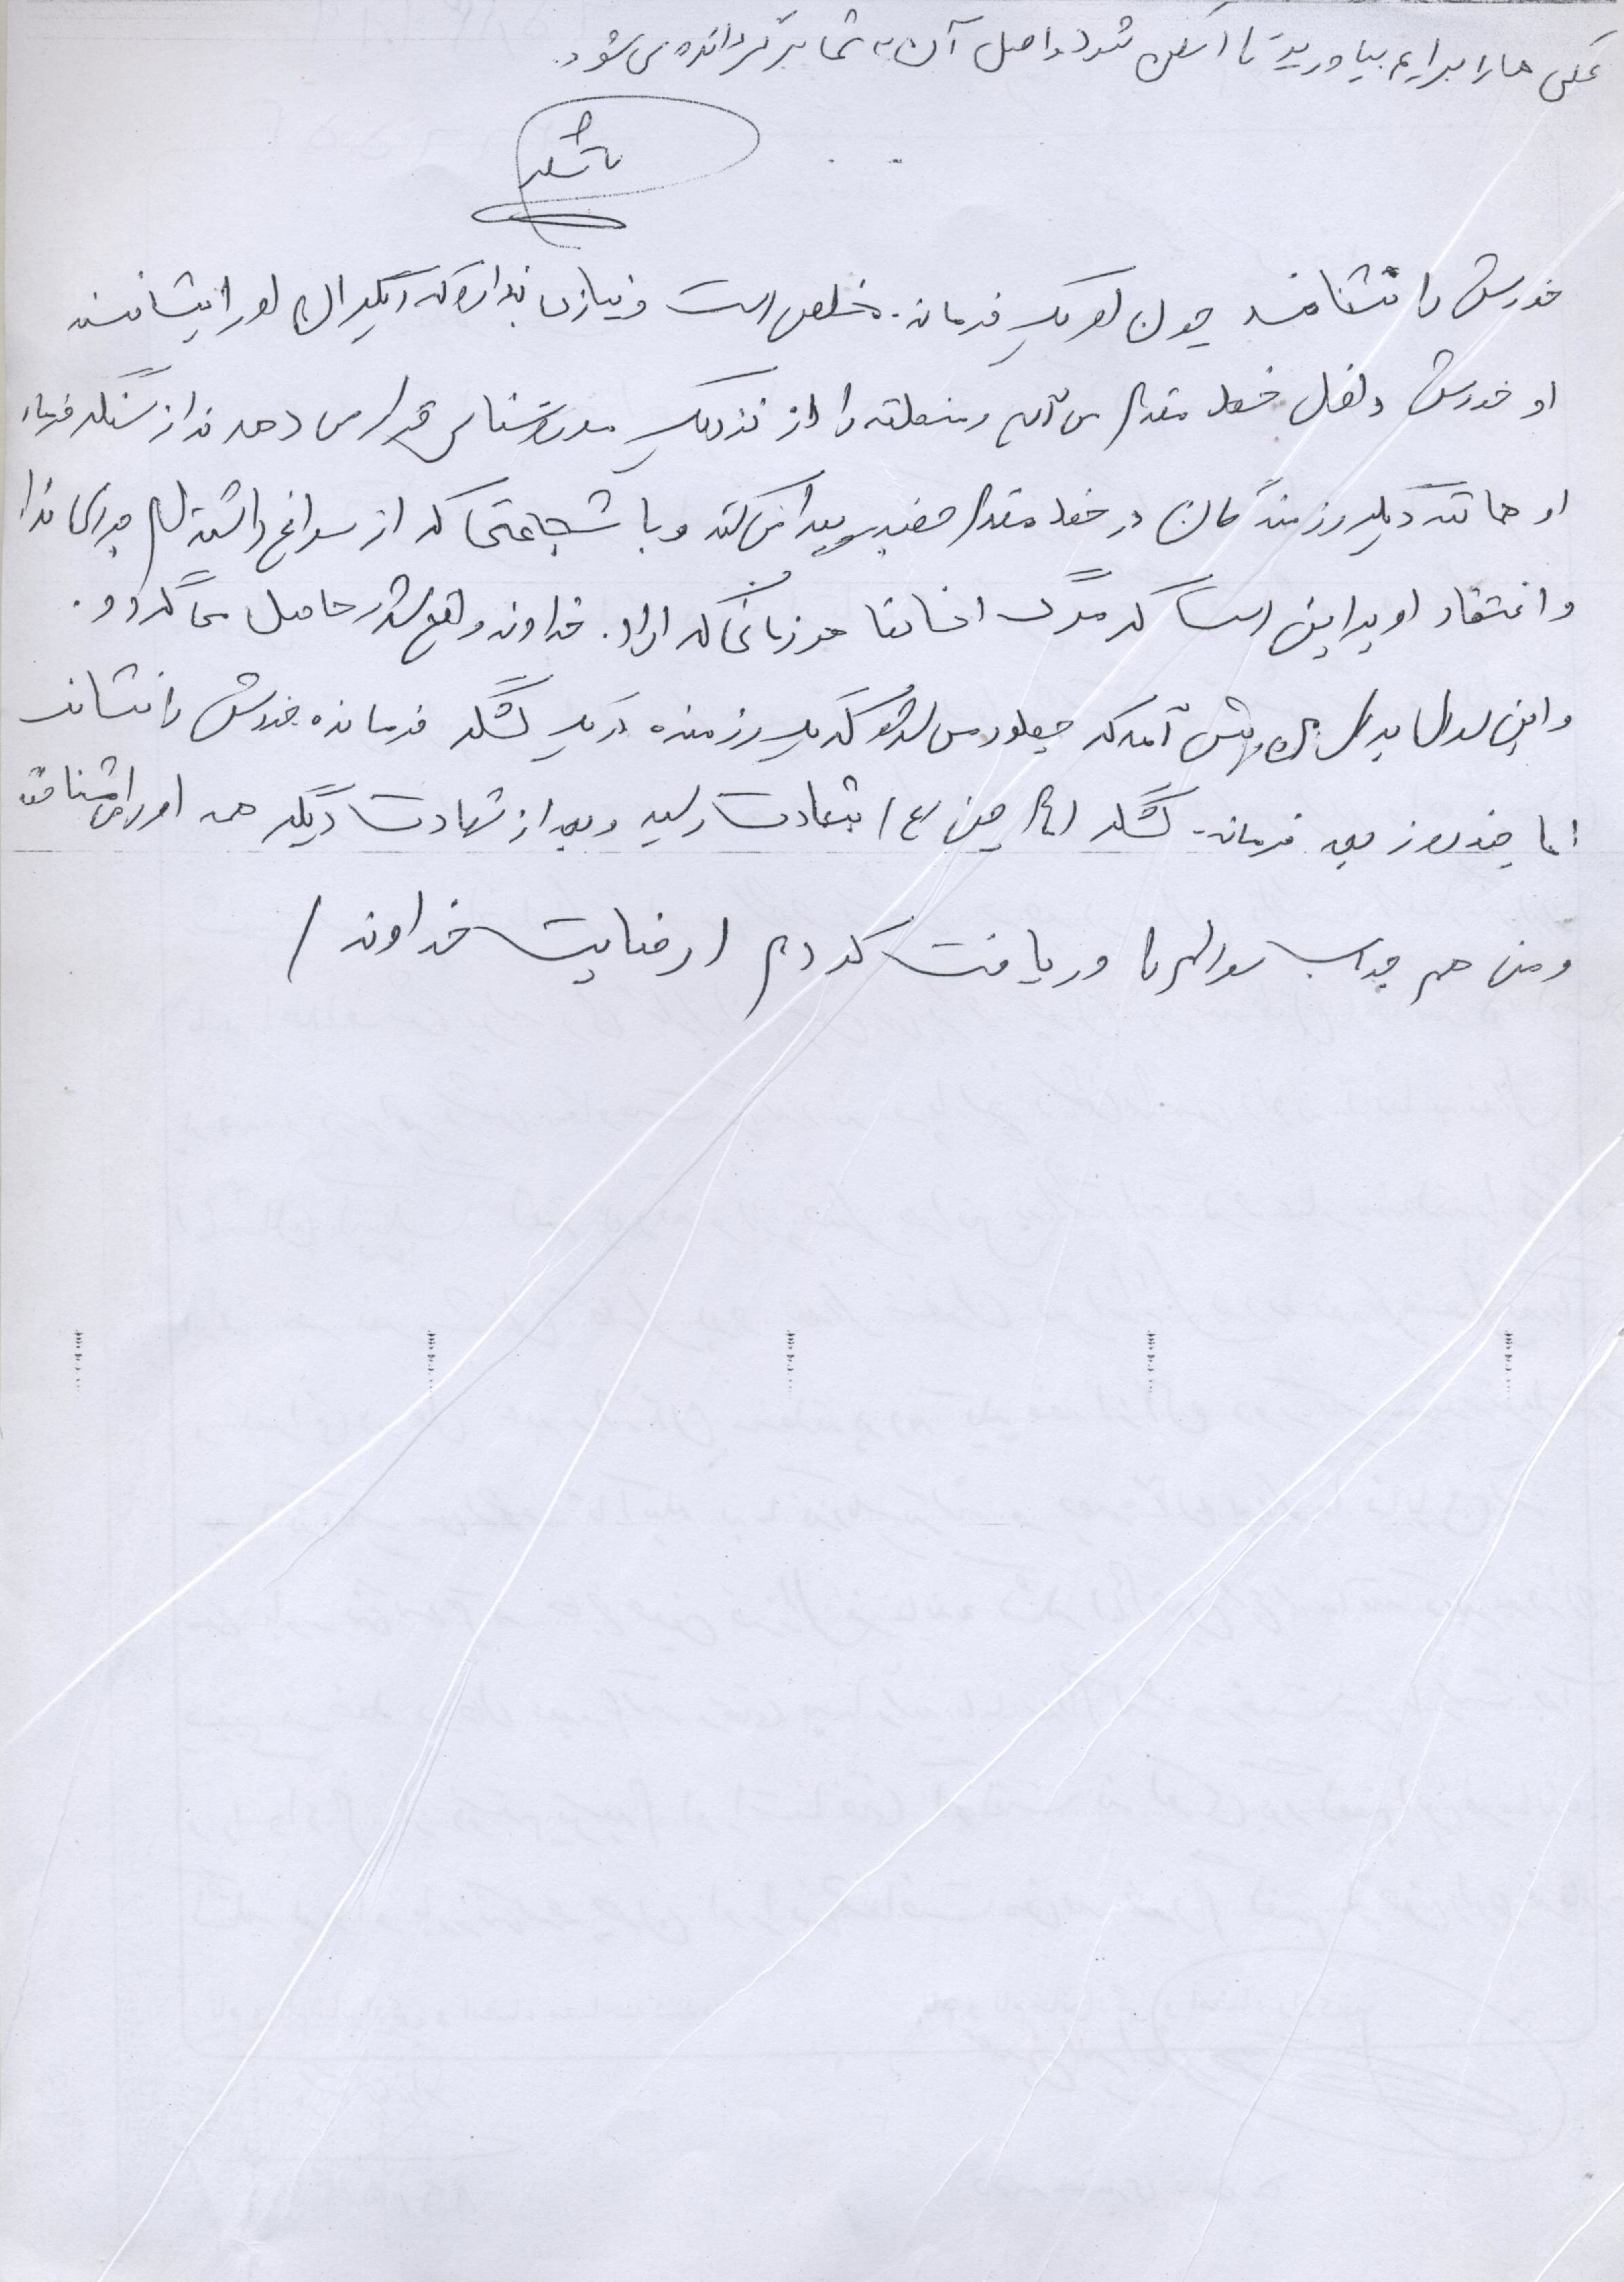 عکس ها را برایم بیاورید تا اسکن شود و اصل آن به شما برگردانده می شود.
باتشکر
خودش را نشناسند چون او یک فرمانده مخلص است و نیازی ندارد که دیگران او را بشناسند
او خودش داخل خط مقدم می آید و منطقه را از نزدیک مورد شناسایی قرار می دهد نه از سنگر فرماندهی
او مانند دیگر رزمندگان در خط مقدم حضور پیدا می کند و با شجاعتی که از سراغ داشتم
و اعتقاد او بر این است که مرگ انسانها هر زمانی که اراده خداوند واقع شد حاصل می گردد.
و این سوال برای پیش آمد که چطور می شود که یک رزمنده در یک لشگر فرمانده خودش را نشناسد
اما چند روز بعد فرمانده لشگر امام حسین (ع) بشهادت رسید و بعد از شهادت دیگر همه او را می شناختند
و من هم جواب سوالم را دریافت کردم (رضایت خداوند)